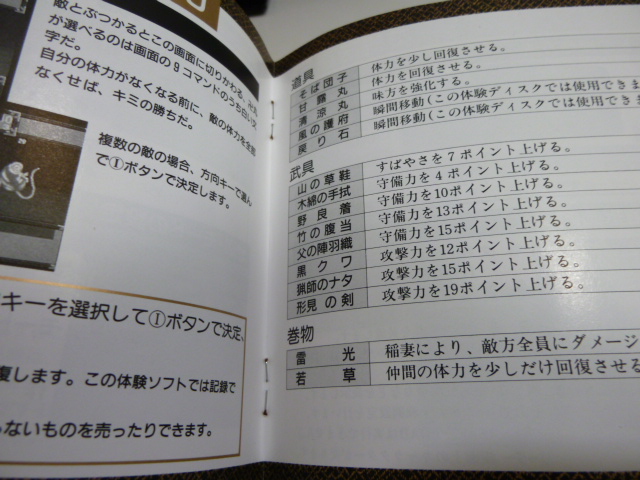 敵とぶつかるとこの画面に切りかわる。
が選べるのは画面の9コマンドのうち白い文
字だ。
自分の体力がなくなる前に、敵の体力を全部
なくせば、キミの勝ちだ。
複数の敵の場合、方向キーで選ん
で①ボタンで決定します。
キーを選択して①ボタンで決定、
復します。この体験ソフトでは記録で
らないものを売ったりできます。
道具
そば団子 体力を少し回復させる。
甘露丸 体力を回復させる。
清涼丸 味方を強化する。
風の護府 瞬間移動(この体験ディスクでは使用できま
戻り石 瞬間移動(この体験ディスクでは使用できま
武具
山の草鞋 すばやさを7ポイント上げる。
木綿の手拭 守備力を4ポイント上げる。
野良着 守備力を10ポイント上げる。
竹の腹当 守備力を13ポイント上げる。
父の陣羽織 守備力を15ポイント上げる。
黒クワ 攻撃力を12ポイント上げる。
猟師のナタ 攻撃力を15ポイント上げる。
形見の剣 攻撃力を19ポイント上げる。
巻物
雷光 稲妻により、敵方全員にダメージ
若草 仲間の体力を少しだけ回復させる